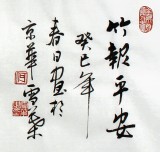 竹報平安
癸巳年
春日画於
京華雪馨